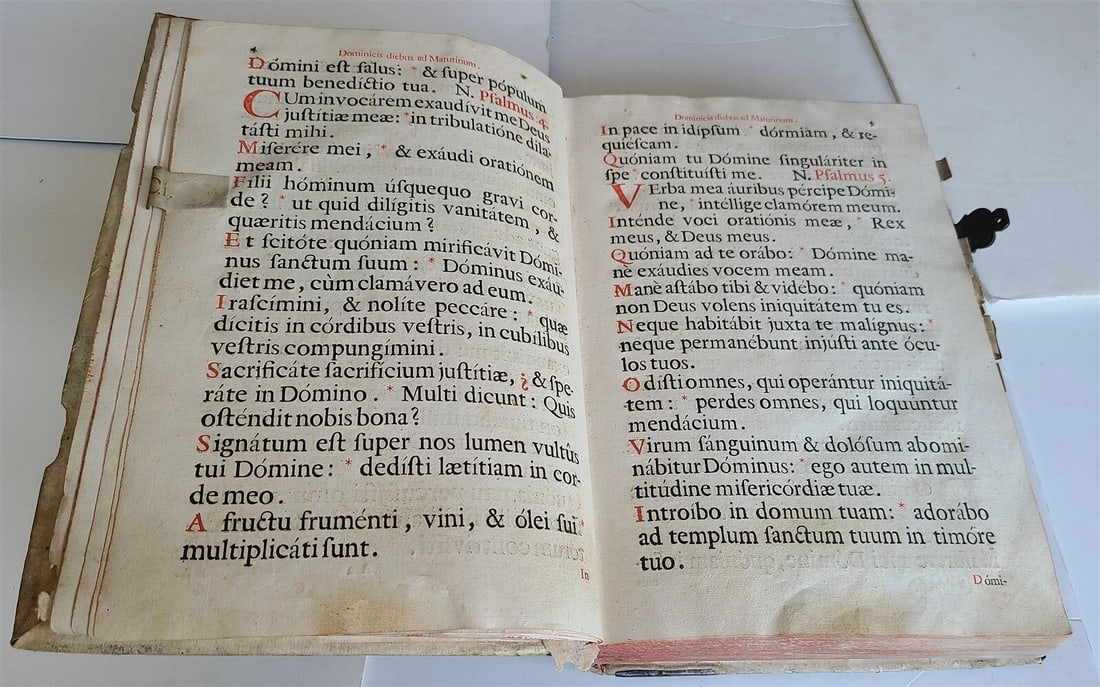 4
Dominicis diebus ad Matutinum.
Dómini eſt ſalus: * & ſuper pópulum
tuum benedíctio tua. N. Pſalmus 4.
CUm invocárem exaudívit me Deus
juſtítiæ meæ: * in tribulatióne dila-
táſti mihi.
Miſerére mei, * & exáudi oratiónem
meam.
Fílii hóminum úſquequo gravi cor-
de? * ut quid dilígitis vanitátem, &
quæritis mendácium?
Et ſcitóte quóniam mirificávit Dómi-
nus ſanctum ſuum: * Dóminus exáu-
diet me, cùm clamávero ad eum.
Iraſcímini, & nolíte peccáre: * quæ
dícitis in córdibus veſtris, in cubílibus
veſtris compungímini.
Sacrificáte ſacrifícium juſtítiæ, & ſpe-
ráte in Dómino. * Multi dicunt: Quis
oſténdit nobis bona?
Signátum eſt ſuper nos lumen vultûs
tui Dómine: * dedíſti lætítiam in cor-
de meo.
A fructu fruménti, vini, & ólei ſui *
multiplicáti ſunt.
In
Dominicis diebus ad Matutinum.
5
In pace in idípſum * dórmiam, & re-
quiéſcam.
Quóniam tu Dómine ſinguláriter in
ſpe * conſtituíſti me. N. Pſalmus 5.
VErba mea áuribus pércipe Dómi-
ne, * intéllige clamórem meum.
Inténde voci oratiónis meæ, * Rex
meus, & Deus meus.
Quóniam ad te orábo: * Dómine ma-
ne exáudies vocem meam.
Manè aſtábo tibi & vidébo: * quóniam
non Deus volens iniquitátem tu es.
Neque habitábit juxta te malígnus: *
neque permanébunt injúſti ante ócu-
los tuos.
Odíſti omnes, qui operántur iniquitá-
tem: * perdes omnes, qui loquúntur
mendácium.
Virum ſánguinum & dolóſum abomi-
nábitur Dóminus: * ego autem in mul-
titúdine miſericórdiæ tuæ.
Introíbo in domum tuam: * adorábo
ad templum ſanctum tuum in timóre
tuo.
Dómi-